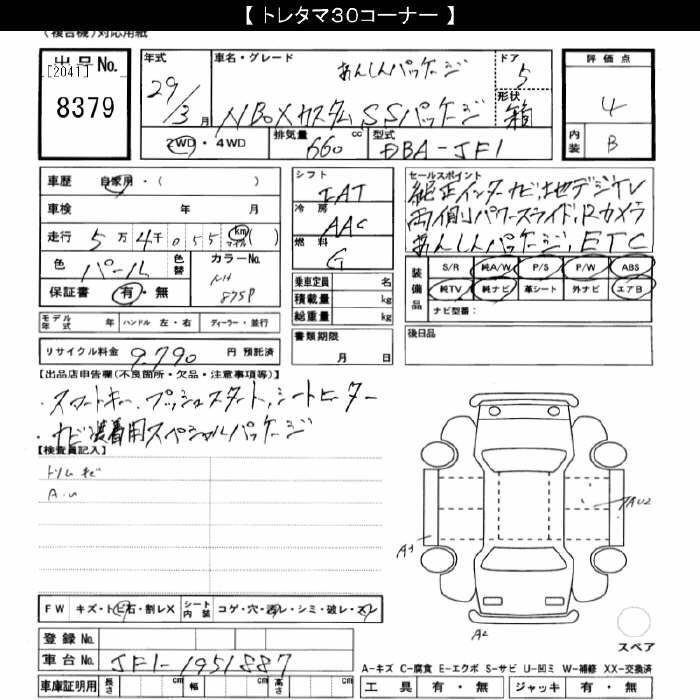 【 トレタマ30コーナー 】
(複合機)対応用紙
出品No.
[2041]
8379
年式
29/3月
車名・グレード
あんしんパッケージ
N BOXカスタム SSパッケージ
ドア
5
形状
箱
評価点
4
内装
B
2WD・4WD
排気量 660 cc
型式 DBA-JF1
車歴 自家用・( )
車検 年 月
走行 5万4千055 km マイル ( )
色 パール
色替
カラーNo.
NH
875P
保証書 有・無
シフト
IAT
冷房
AAC
燃料
G
乗車定員 名
積載量 kg
総重量 kg
セールスポイント
純正インターナビ,地デジTV
両側パワースライド,Rカメラ
あんしんパッケージ,ETC
装備品
S/R 純A/W P/S P/W ABS
純TV 純ナビ 革シート 外ナビ エアB
ナビ型番:
モデル年式 年 ハンドル 左・右 ディーラー・並行
書類期限
月 日
後日品
リサイクル料金 9,790 円 預託済
【出品店申告欄(不良箇所・欠品・注意事項等)】
・スマートキー,プッシュスタート,シートヒーター
・ナビ装着用スペシャルパッケージ
【検査員記入】
トリムキビ
A.U
AU2
A1
A2
FW キズ・トビ石・割レX
シート内装 コゲ・穴・汚レ・シミ・破レ・スレ
スペア
登録No.
車台No. JF1-1951887
A-キズ C-腐食 E-エクボ S-サビ U-凹ミ W-補修 XX-交換済
車庫証明用 長さ cm 幅 cm 高さ cm
工具 有・無 ジャッキ 有・無